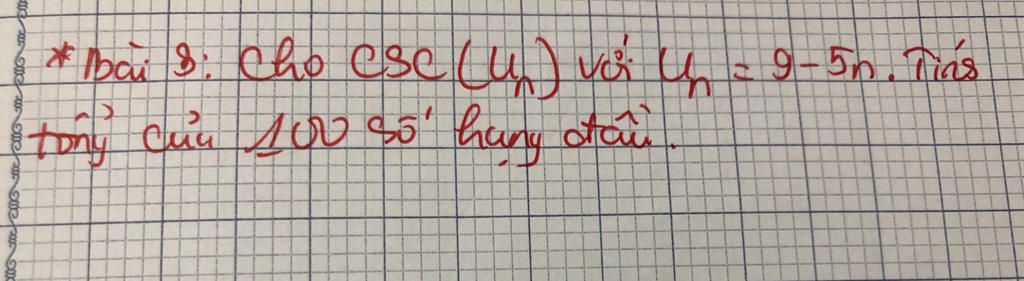 *Bài 8: Cho CSC (Un) với Un = 9-5n. Tính
tổng của 100 số hạng đầu.